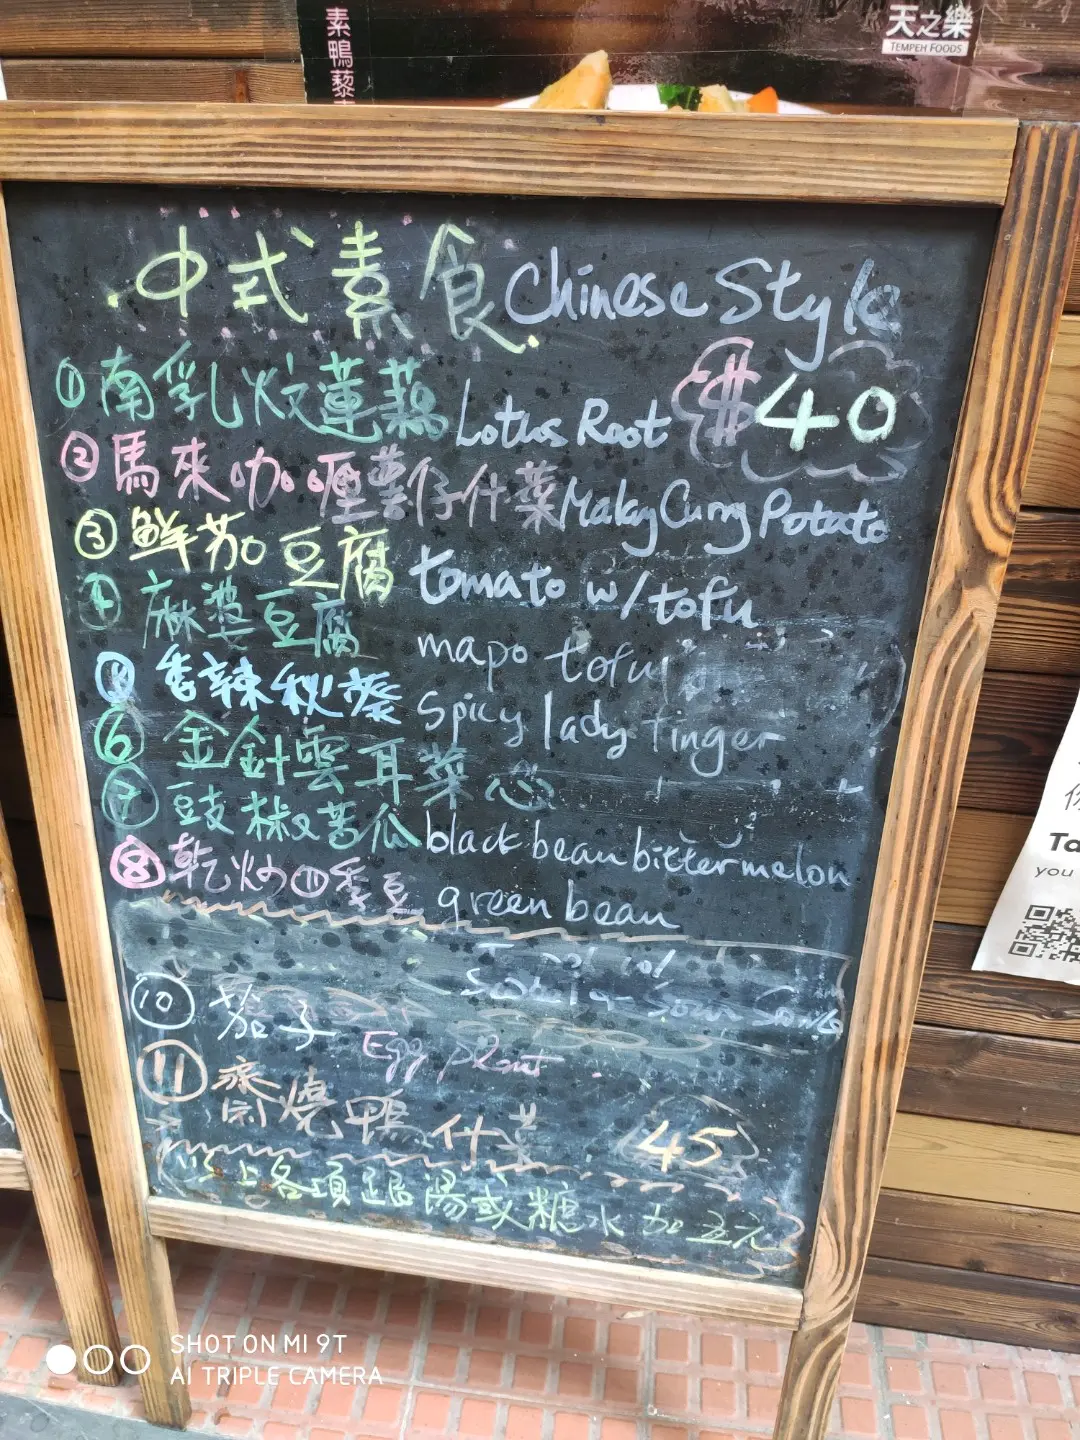 素鴨藜
天之樂
TEMPEH FOODS
中式素食 Chinese Style
① 南乳炆蓮藕 Lotus Root $40
② 馬來咖喱薯仔什菜 Malay Curry Potato
③ 鮮茄豆腐 tomato w/tofu
4 麻婆豆腐 mapo tofu
香辣秋葵 Spicy lady finger
⑥ 金針雲耳菜心
⑦ 豉椒苦瓜 black bean bittermelon
⑧ 乾炒四季豆 green bean
Sour
⑩ 茄子 Egg plant
⑪ 齋燒鴨什菜 45
以上各項跟湯或糖水加五元
Ta
you
SHOT ON MI 9T
AI TRIPLE CAMERA